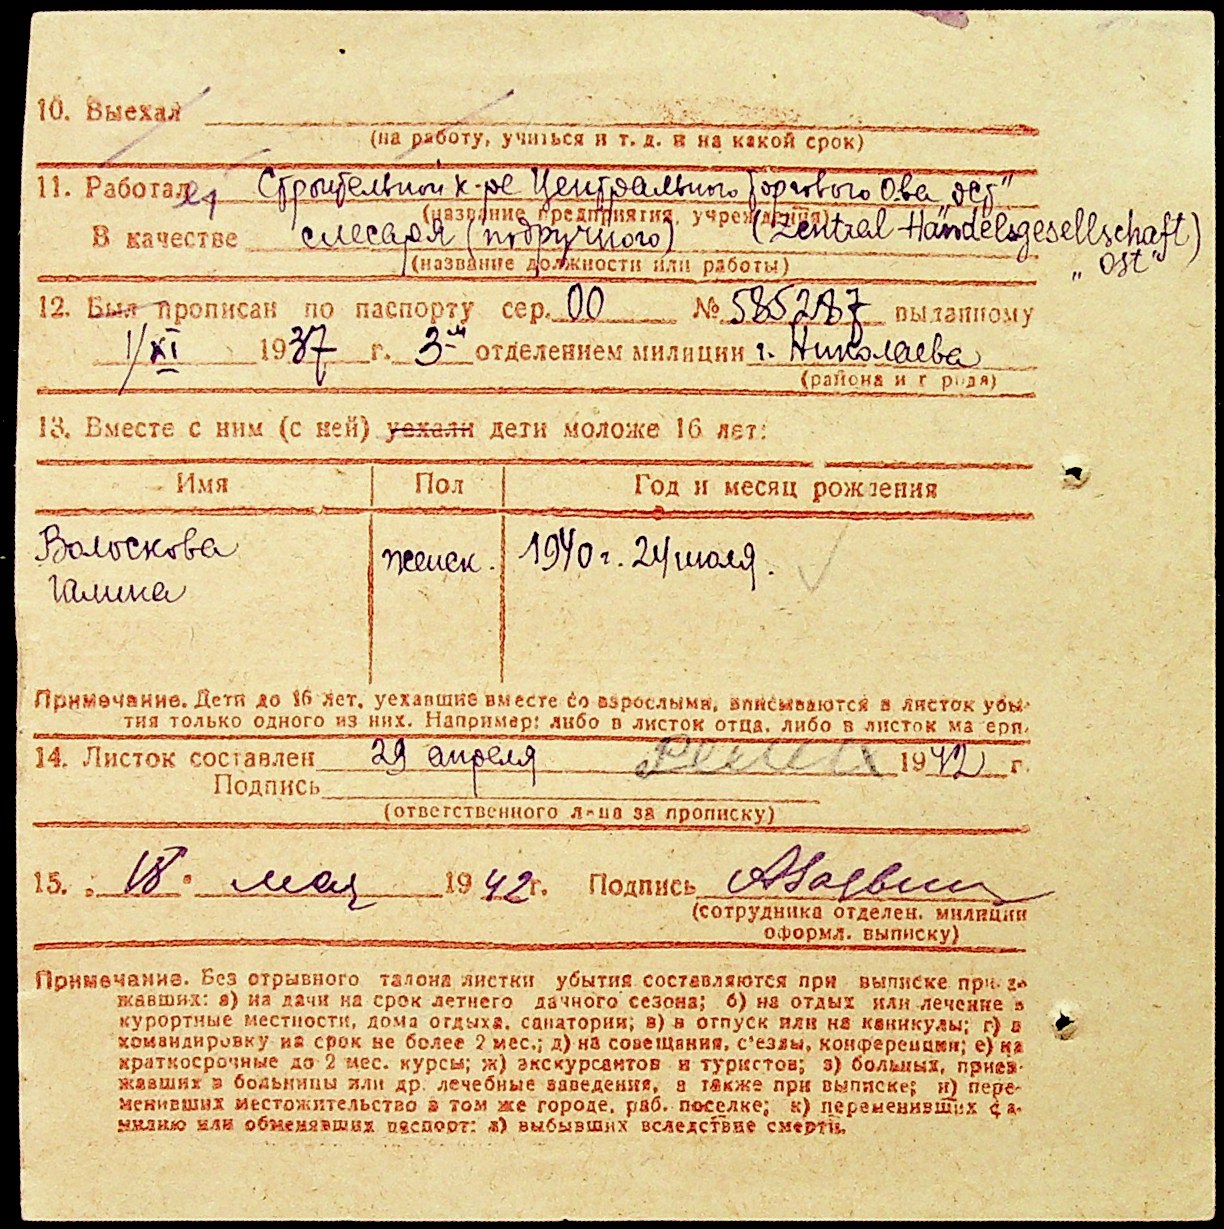 10. Выехал
(на работу, учиться и т. д. и на какой срок)
11. Работал ет Строительной к-ре Центрального Торгового О-ва „Ост"
(название предприятия, учреждения)
В качестве слесаря (подручного) (Zentral Handelsgesellschaft)
„Ost"
(название должности или работы)
12. Был прописан по паспорту сер. 00 № 585287 выданному
1/XI 1937 г. 3-м отделением милиции г. Николаева
(района и города)
13. Вместе с ним (с ней) уехали дети моложе 16 лет:
Имя Пол Год и месяц рождения
Волоскова женск. 1940 г. 24 июля.
Галина
Примечание. Дети до 16 лет, уехавшие вместе со взрослыми, вписываются в листок убы-
тия только одного из них. Например: либо в листок отца, либо в листок матери.
14. Листок составлен 29 апреля 1942 г.
Подпись
(ответственного лица за прописку)
15. „18" мая 1942 г. Подпись
(сотрудника отделен. милиции
оформл. выписку)
Примечание. Без отрывного талона листки убытия составляются при выписке приез-
жавших: а) на дачи на срок летнего дачного сезона; б) на отдых или лечение в
курортные местности, дома отдыха, санатории; в) в отпуск или на каникулы; г) в
командировку на срок не более 2 мес.; д) на совещания, с'езды, конференции; е) на
краткосрочные до 2 мес. курсы; ж) экскурсантов и туристов; з) больных, приез-
жавших в больницы или др. лечебные заведения, а также при выписке; и) пере-
менивших местожительство в том же городе, раб. поселке; к) переменивших фа-
милию или обменявших паспорт; л) выбывших вследствие смерти.